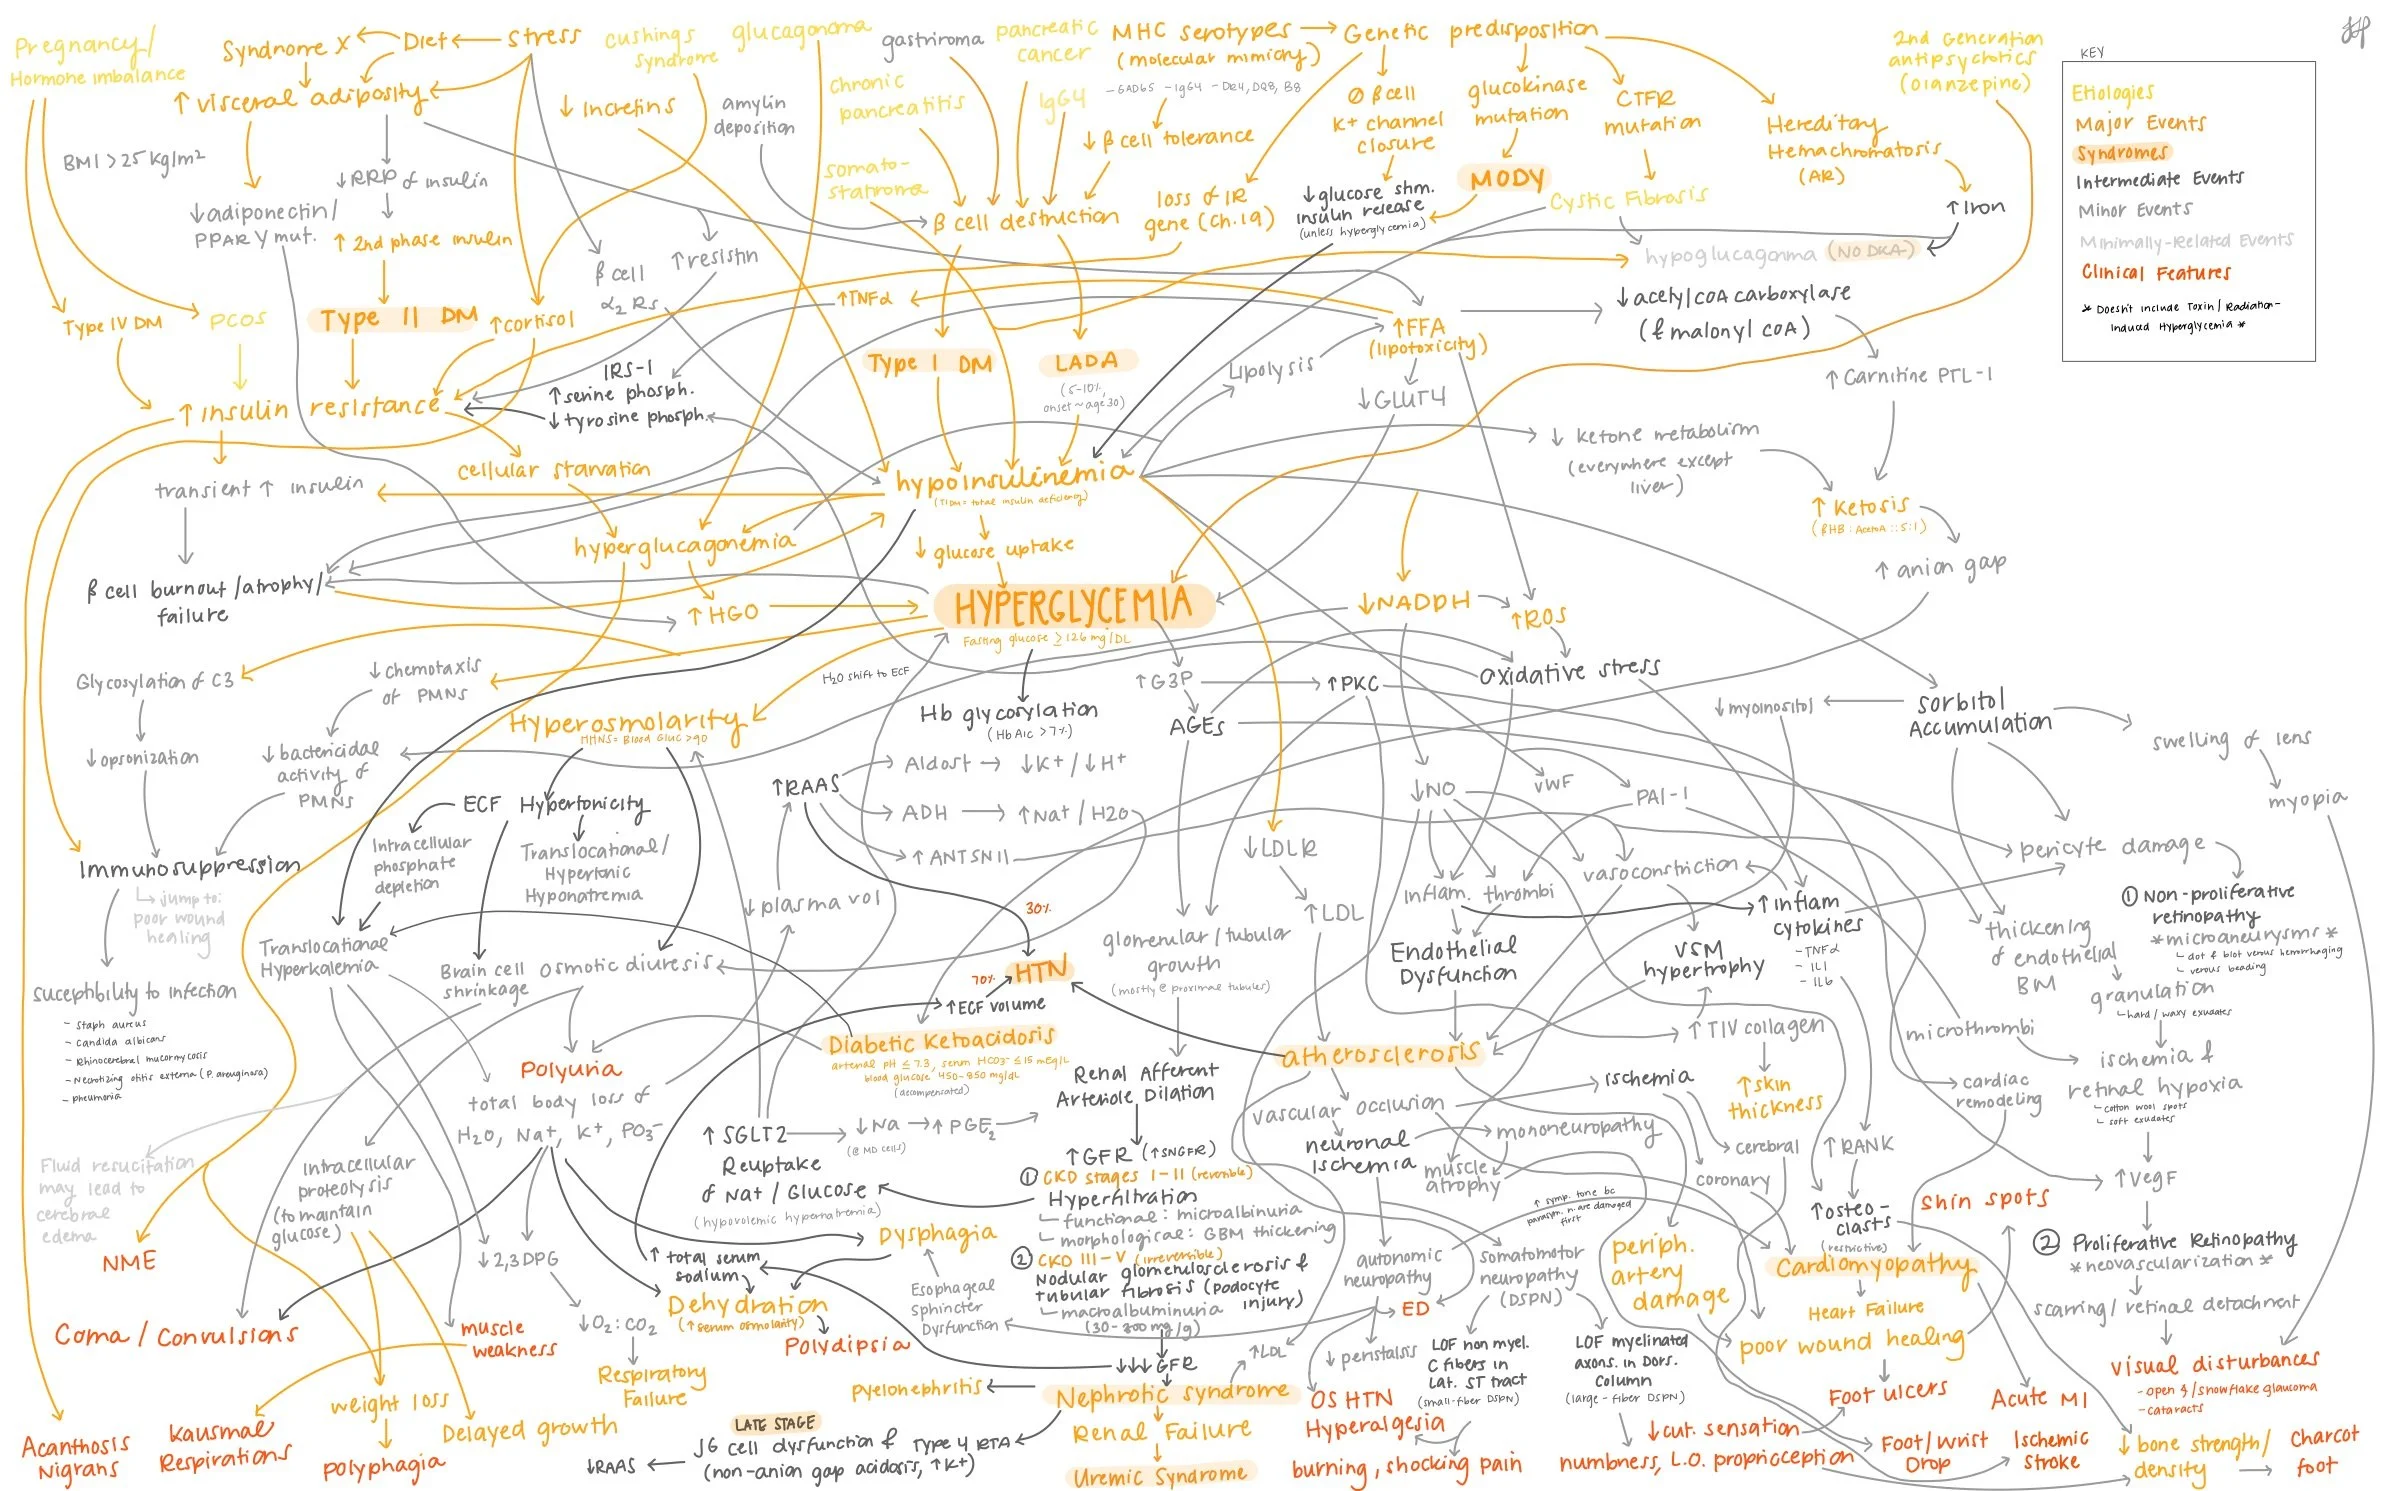 Pregnancy/
Hormone imbalance
Syndrome X
Diet
Stress
cushings
syndrome
glucagonoma
gastriroma
pancreatic
cancer
MHC serotypes
(molecular mimicry)
-GAD65 -IgG4 -DR4, DQ8, B8
Genetic predisposition
2nd Generation
antipsychotics
(olanzepine)
KEY
Etiologies
Major Events
Syndromes
Intermediate Events
Minor Events
Minimally-Related Events
Clinical Features
* Doesn't include Toxin/Radiation-
Induced Hyperglycemia *
↑ visceral adiposity
↓ Incretins
amylin
deposition
chronic
pancreatitis
IgG4
↓ β cell tolerance
Ø β cell
K+ channel
closure
glucokinase
mutation
CTFR
mutation
Hereditary
Hemachromatosis
(AR)
BMI > 25 kg/m²
↓RRP of insulin
↓adiponectin/
PPARγ mut.
↑ 2nd phase insulin
somato-
statroma
β cell destruction
loss of IR
gene (ch.19)
↓glucose stim.
insulin release
(unless hyperglycemia)
MODY
Cystic Fibrosis
↑Iron
hypoglucagonma (NO DKA)
β cell
α2 Rs
↑resistin
Type IV DM
PCOS
Type II DM
↑cortisol
↑TNFα
↑FFA
(lipotoxicity)
↓acetyl COA carboxylase
(& malonyl COA)
IRS-1
↑serine phosph.
↓tyrosine phosph.
Type I DM
LADA
(5-10%,
onset ~ age 30)
Lipolysis
↓GLUT4
↑ Carnitine PTL-1
↑ insulin resistance
↓ ketone metabolism
(everywhere except
liver)
transient ↑ insulin
cellular starvation
hypoinsulinemia
(T1DM = total insulin deficiency)
↑ ketosis
(βHB : AcetoA :: 5:1)
hyperglucagonemia
↓ glucose uptake
↑ anion gap
β cell burnout/atrophy/
failure
↑ HGO
HYPERGLYCEMIA
Fasting glucose ≥ 126 mg/DL
↓NADPH
↑ROS
Glycosylation of C3
↓chemotaxis
of PMNs
H2O shift to ECF
↑G3P
↑PKC
oxidative stress
↓myoinositol
sorbitol
Accumulation
Hyperosmolarity
HHNS = Blood Gluc >90
Hb glycosylation
(HbA1c >7%)
AGEs
swelling of lens
↓opsonization
↓ bactericidal
activity of
PMNs
↑RAAS
Aldost → ↓K+/↓H+
↓NO
vWF
PAI-1
myopia
ECF Hypertonicity
ADH → ↑Na+/H2O
Immunosuppression
Intracellular
phosphate
depletion
Translocational/
Hypertonic
Hyponatremia
↑ANTSN II
↓LDLR
vasoconstriction
pericyte damage
jump to:
poor wound
healing
↓plasma vol
30%
↑LDL
Inflam.
thrombi
↑ Inflam
cytokines
-TNFα
-IL1
-IL6
① Non-proliferative
retinopathy
*microaneurysms*
dot & blot venous hemorrhaging
venous beading
Translocational
Hyperkalemia
Brain cell
shrinkage
osmotic diuresis
glomerular/tubular
growth
(mostly @ proximal tubules)
Endothelial
Dysfunction
VSM
hypertrophy
thickening
of endothelial
BM
70%
HTN
↑ECF volume
granulation
hard/waxy exudates
suceptibility to infection
- Staph aureus
- Candida albicans
- Rhinocerebral mucormycosis
- Necrotizing otitis externa (P. areuginosa)
- pneumonia
Diabetic Ketoacidosis
arterial pH ≤ 7.3, serum HCO3- ≤ 15 mEq/L
blood glucose 450-850 mg/dL
(decompensated)
atherosclerosis
↑ TIV collagen
microthrombi
Polyuria
Renal Afferent
Arteriole Dilation
ischemia &
retinal hypoxia
cotton wool spots
soft exudates
total body loss of
H2O, Na+, K+, PO3-
vascular occlusion
ischemia
↑skin
thickness
cardiac
remodeling
↑ SGLT2
Reuptake
of Na+/Glucose
(hypovolemic hypernatremia)
↓Na
(@ MD cells)
↑ PGE2
neuronal
ischemia
mononeuropathy
cerebral
↑RANK
Fluid resucitation
may lead to
cerebral
edema
Intracellular
proteolysis
(to maintain
glucose)
↑GFR (↑SNGFR)
① CKD stages I-II (reversible)
Hyperfiltration
functional: microalbinuria
morphological: GBM thickening
② CKD III-V (irreversible)
Nodular glomerulosclerosis &
tubular fibrosis (podocyte
injury)
macroalbuminuria
(30-300 mg/g)
muscle
atrophy
coronary
↑VegF
↑ symp. tone bc
parasym. n. are damaged
first
↑osteo-
clasts
(restrictive)
Shin spots
NME
↓2,3 DPG
Dysphagia
↑ total serum
sodium
autonomic
neuropathy
somatomotor
neuropathy
(DSPN)
periph.
artery
damage
Cardiomyopathy
② Proliferative Retinopathy
*neovascularization*
Dehydration
(↑serum osmolarity)
Esophageal
sphincter
Dysfunction
ED
Heart Failure
scarring/retinal detachment
Coma/Convulsions
muscle
weakness
↓O2:CO2
Polydipsia
↓↓↓GFR
↑LDL
↓ peristalsis
LOF non myel.
C fibers in
Lat. ST tract
(small-fiber DSPN)
LOF myelinated
axons. in Dors.
Column
(large-fiber DSPN)
poor wound healing
visual disturbances
-open & /snowflake glaucoma
-cataracts
Respiratory
Failure
pyelonephritis
Nephrotic syndrome
OS HTN
Hyperalgesia
Foot ulcers
Acute MI
weight loss
Acanthosis
Nigrans
Kausmal
Respirations
polyphagia
Delayed growth
LATE STAGE
JG cell dysfunction & Type 4 RTA
(non-anion gap acidosis, ↑K+)
↓RAAS
Renal Failure
Uremic Syndrome
burning, shocking pain
↓cut. sensation
numbness, L.O. proprioception
Foot/Wrist
Drop
Ischemic
Stroke
↓ bone strength/
density
Charcot
foot